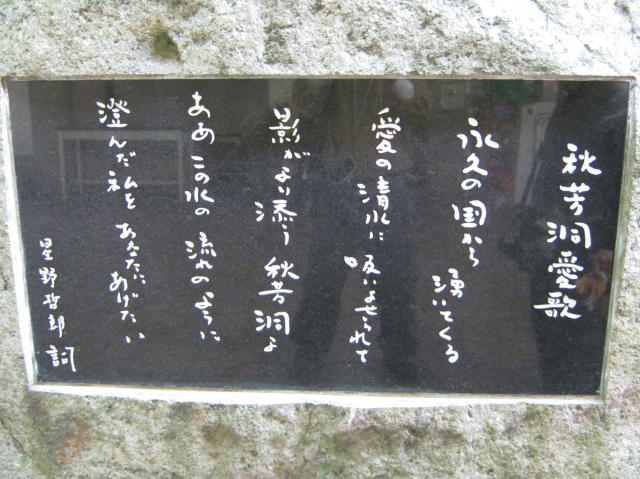 秋芳洞愛歌
永久の国から 湧いてくる
愛の清水に 吸いよせられて
影がより添う 秋芳洞よ
ああ この水の 流れのように
澄んだ私を あなたに あげたい
星野哲郎 詞